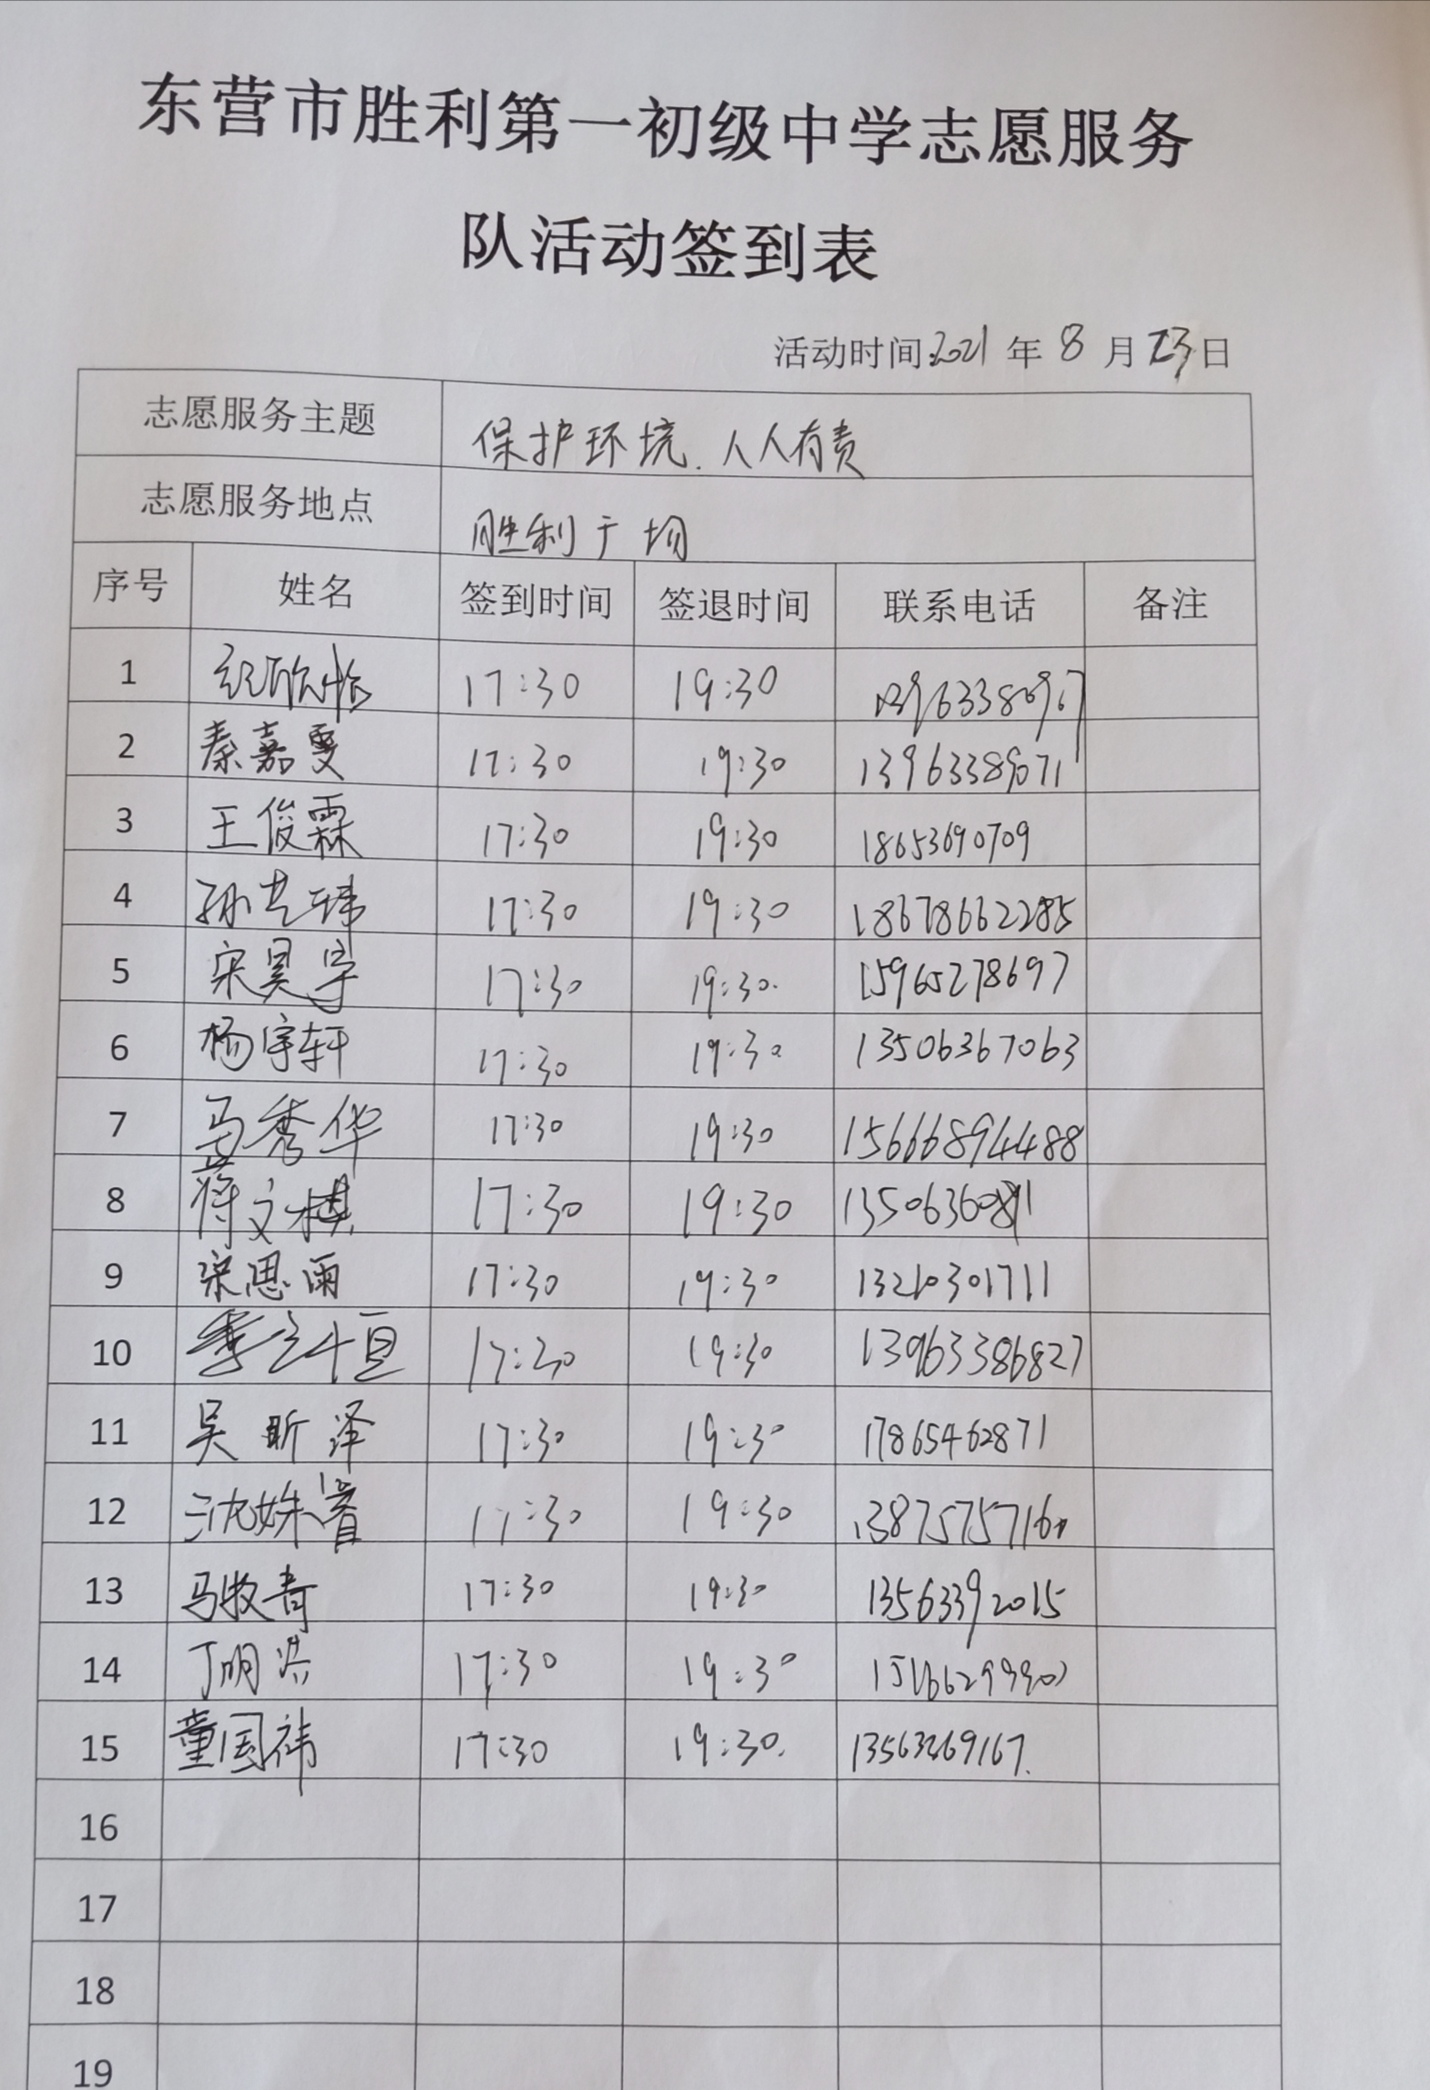 东营市胜利第一初级中学志愿服务
队活动签到表
活动时间:2021 年 8 月 23 日
志愿服务主题 保护环境.人人有责
志愿服务地点 胜利广场
序号 姓名 签到时间 签退时间 联系电话 备注
1 17:30 19:30
2 秦嘉雯 17:30 19:30 13963389071
3 王俊霖 17:30 19:30 18653690709
4 17:30 19:30 18678662285
5 宋昊宇 17:30 19:30. 15965278697
6 杨宇轩 17:30 19:30 13506367063
7 马秀华 17:30 19:30 15666894488
8 蒋文棋 17:30 19:30
9 宋思雨 17:30 19:30 13210301711
10 季立恒 17:30 19:30 13963386827
11 吴昕泽 17:30 19:30 17865462871
12 17:30 19:30
13 马牧青 17:30 19:30 13563392015
14 丁明洪 17:30 19:30
15 童国祎 17:30 19:30. 13563369167.
16
17
18
19